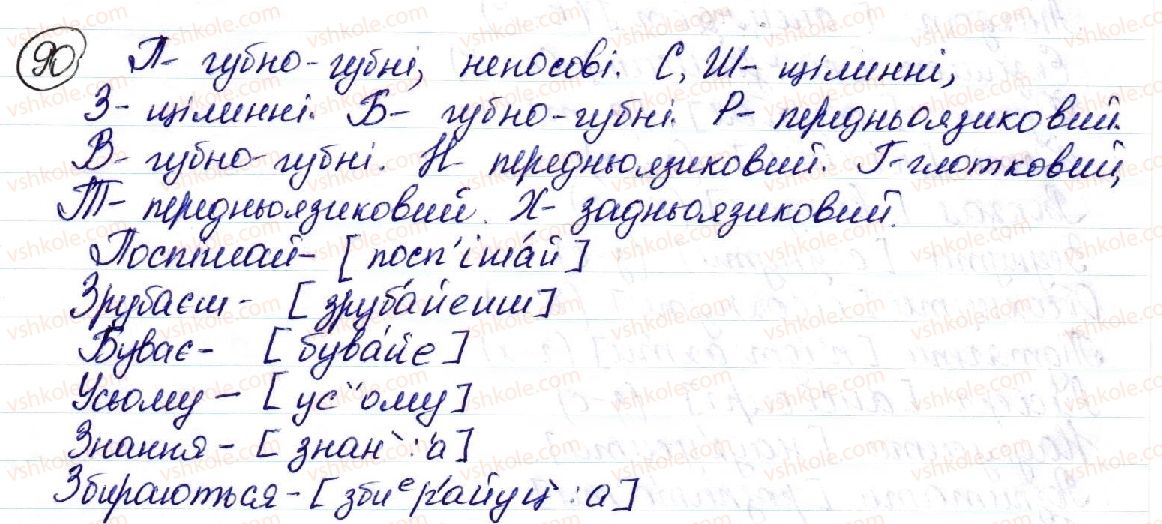 90 П- губно-губні, непосові. С, Ш- щілинні,
З- щілинні. Б- губно-губні. Р- передньоязиковий.
В- губно-губні. Н- передньоязиковий. Г- глотковий,
Т- передньоязиковий. Х- задньоязиковий.
Поспішай- [посп'іша́й]
Зрубаєш- [зруба́йеиш]
Буває- [бува́йе]
Усьому - [ус"ому]
Знання - [знан':а]
Збираються-[збиᵉра́йуц':а]